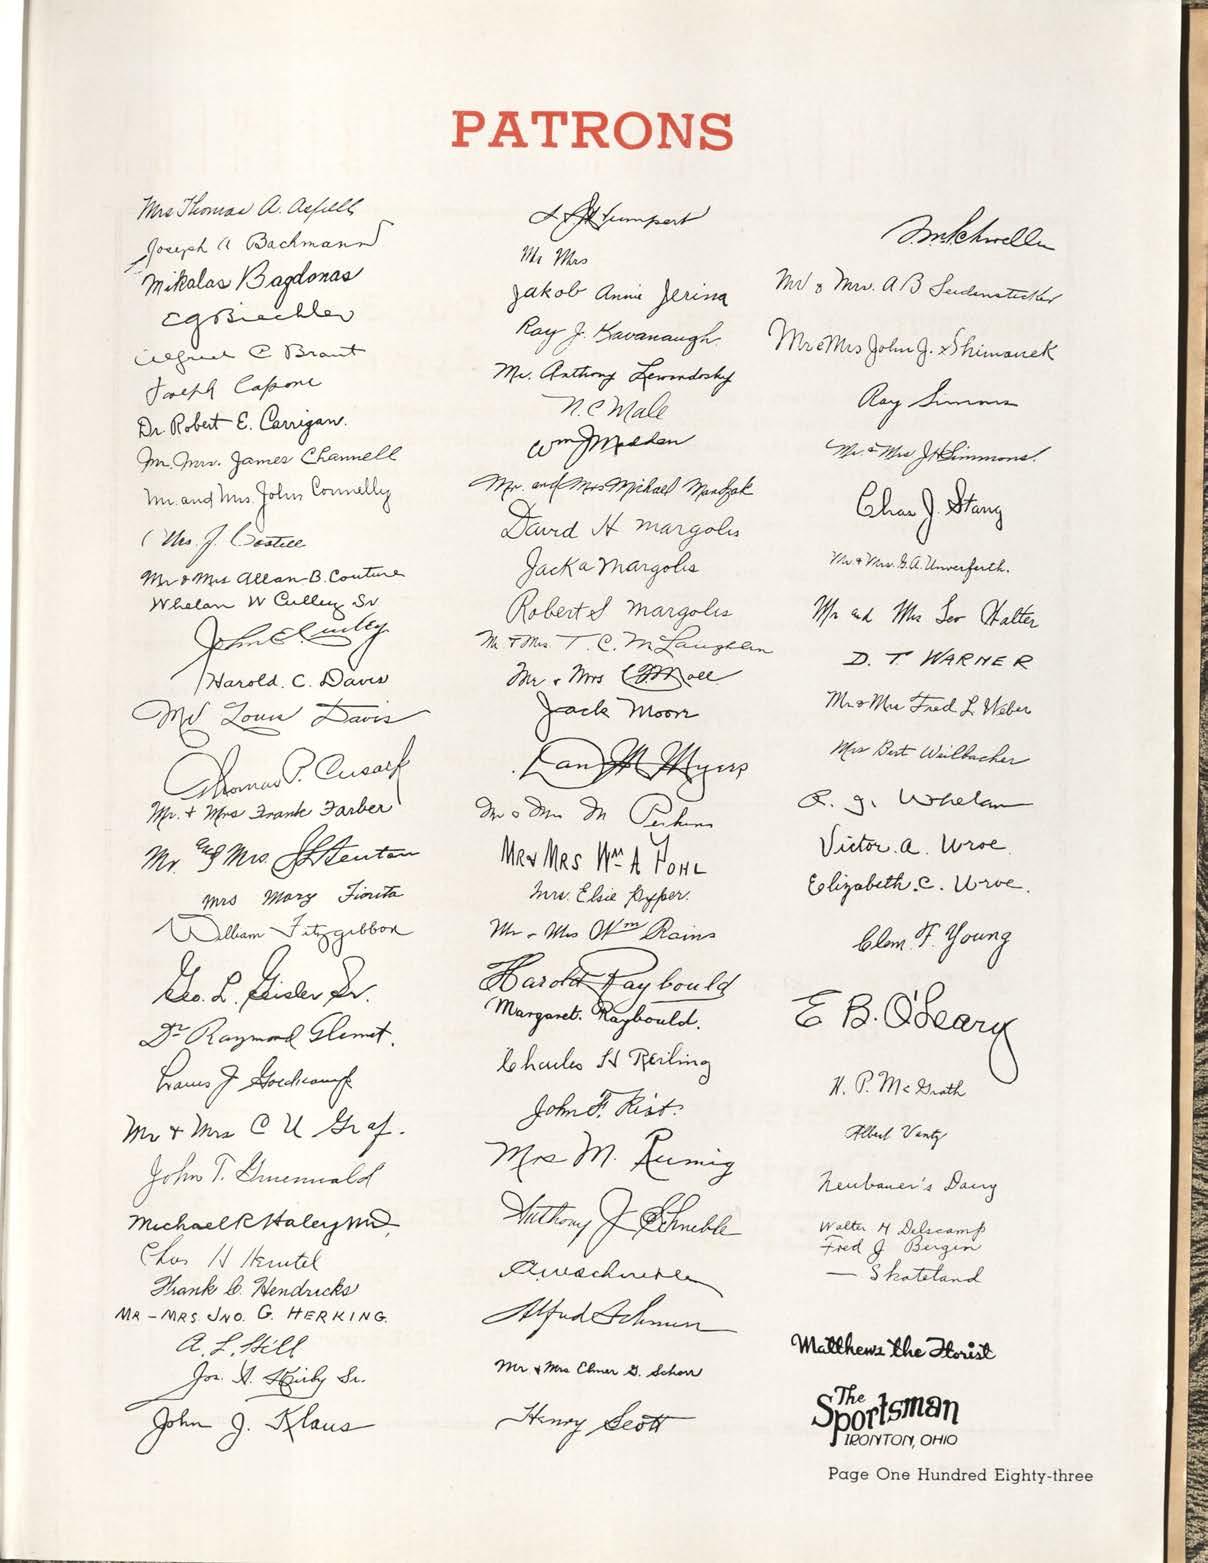 PATRONS
Mrs Thomas A.
Joseph A Bachmann
Mikalas Bagdonas
C G Biechler
Alfred C Braut
Joseph Capone
Dr Robert E. Carrigan.
Mr. Mrs. James Channell
Mr. and Mrs. John Connelly
Mrs. J. Costell
Mr & Mrs Allan B. Couture
Whelan W Culley Sr
John E Curley
Harold. C. Davis
Louis Davis
Thomas P. Cusack
Mr. + Mrs Frank Farber
Mr and Mrs Fenton
Mrs Mary Fiorita
William Fitzgibbon
Geo. L. Geisler Sr.
Dr Raymond Glemet.
Louis J Goedkamp
Mr & Mrs C U Graf.
John T. Gruenwald
Michael R Haley MD.
Chas H Hentel
Frank C. Hendricks
MR - MRS. JNO. G. HERKING.
A. L. Hill
Jos. A. Kirby Sr.
John J. Klaus
Humpert
Mr Mrs
Jakob Annie Jerina
Ray J. Kavanaugh.
Mr. Anthony Lewandosky
N. C Male
Wm J Madden
Mr. and Mrs Michael
David H Margolis
Jack A Margolis
Robert S Margolis
Mr. & Mrs. T. C. McLaughlin
Mr & Mrs Moll
Jack Moore
Dan M Myers
Mr & Mrs M Perkins
MR & MRS Wm A POHL
Mrs. Elsie Pyper.
Mr - Mrs Wm Rains
Harold Raybould
Margaret. Raybould.
Charles H Reiling
John F. Rist.
Mrs M. Rumig
Anthony J. Schneble
Alfred
Mr & Mrs Elmer G. Schorr
Henry Scott
Schweller
Mr & Mrs. A B Seidenstecker
Mr & Mrs John J. Shimanek
Ray Simms
Mr. & Mrs J H Simmons.
Chas J. Stang
Mr. & Mrs. G. A. Unverferth.
Mr and Mrs Leo Walter
D. T. WARNER
Mr & Mrs Fred L Weber
Mrs Bert Weilbacher
R. J. Whelan
Victor. A. Wroe.
Elizabeth. C. Wroe.
Clem. F. Young
E B. O'Leary
H. P. McGrath
Albert Vanty
Neubauer's Dairy
Walter H Delscamp
Fred J Bergen
— Skateland
Matthews the Florist
The
Sportsman
IRONTON, OHIO
Page One Hundred Eighty-three